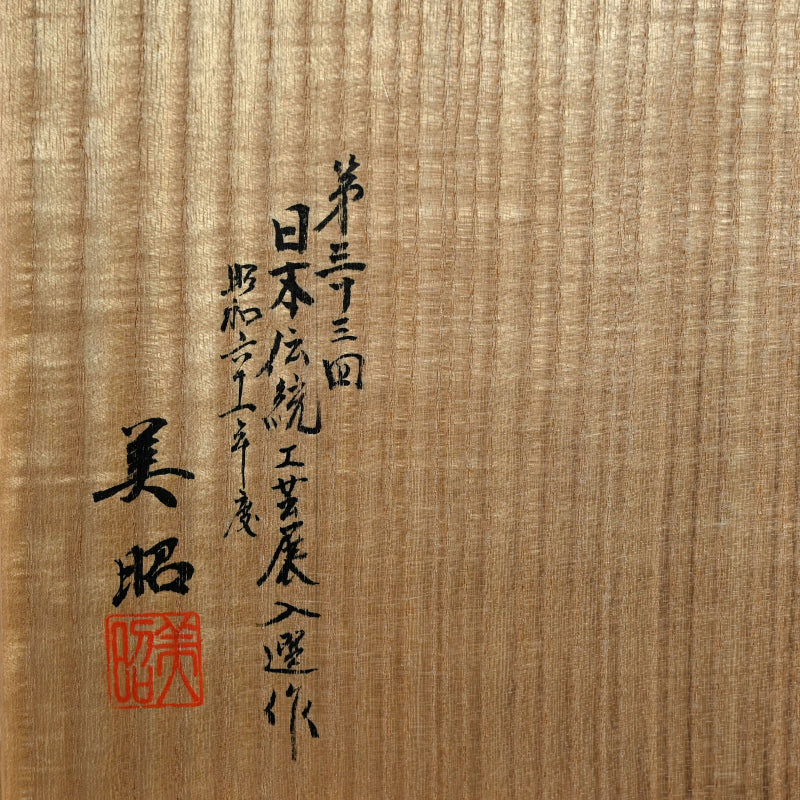 第三十三回
日本伝統工芸展入選作
昭和六十一年度
美昭
美昭